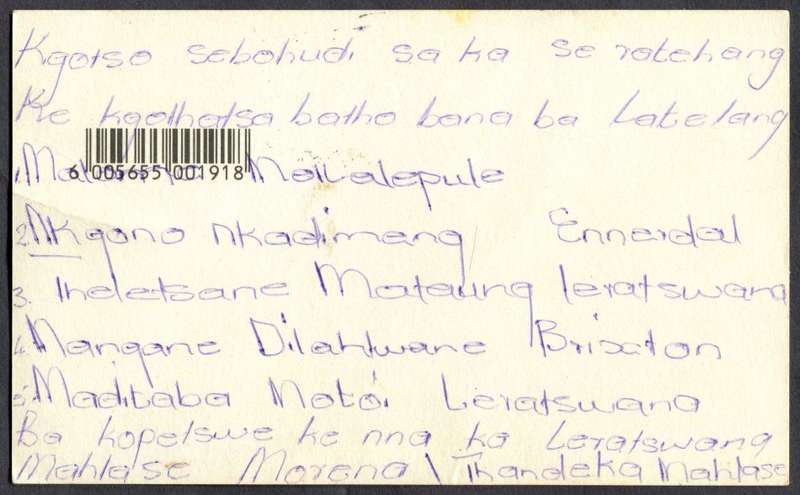 Kgotso sebohudi sa ka se ratehang
Ke kgothatsa batho bana ba Latelang
6 005655 001918
1. Mailalepule
2. Nkgono nkadimeng Ennerdal
3. Theletsane Mataung leratswana
4. Mangane Dilahlwane Brixton
5. Maditaba Motoi Leratswana
Ba kopetswe ke nna ka Leratswang
Mahlase Morena \ Thandeka Mahlase